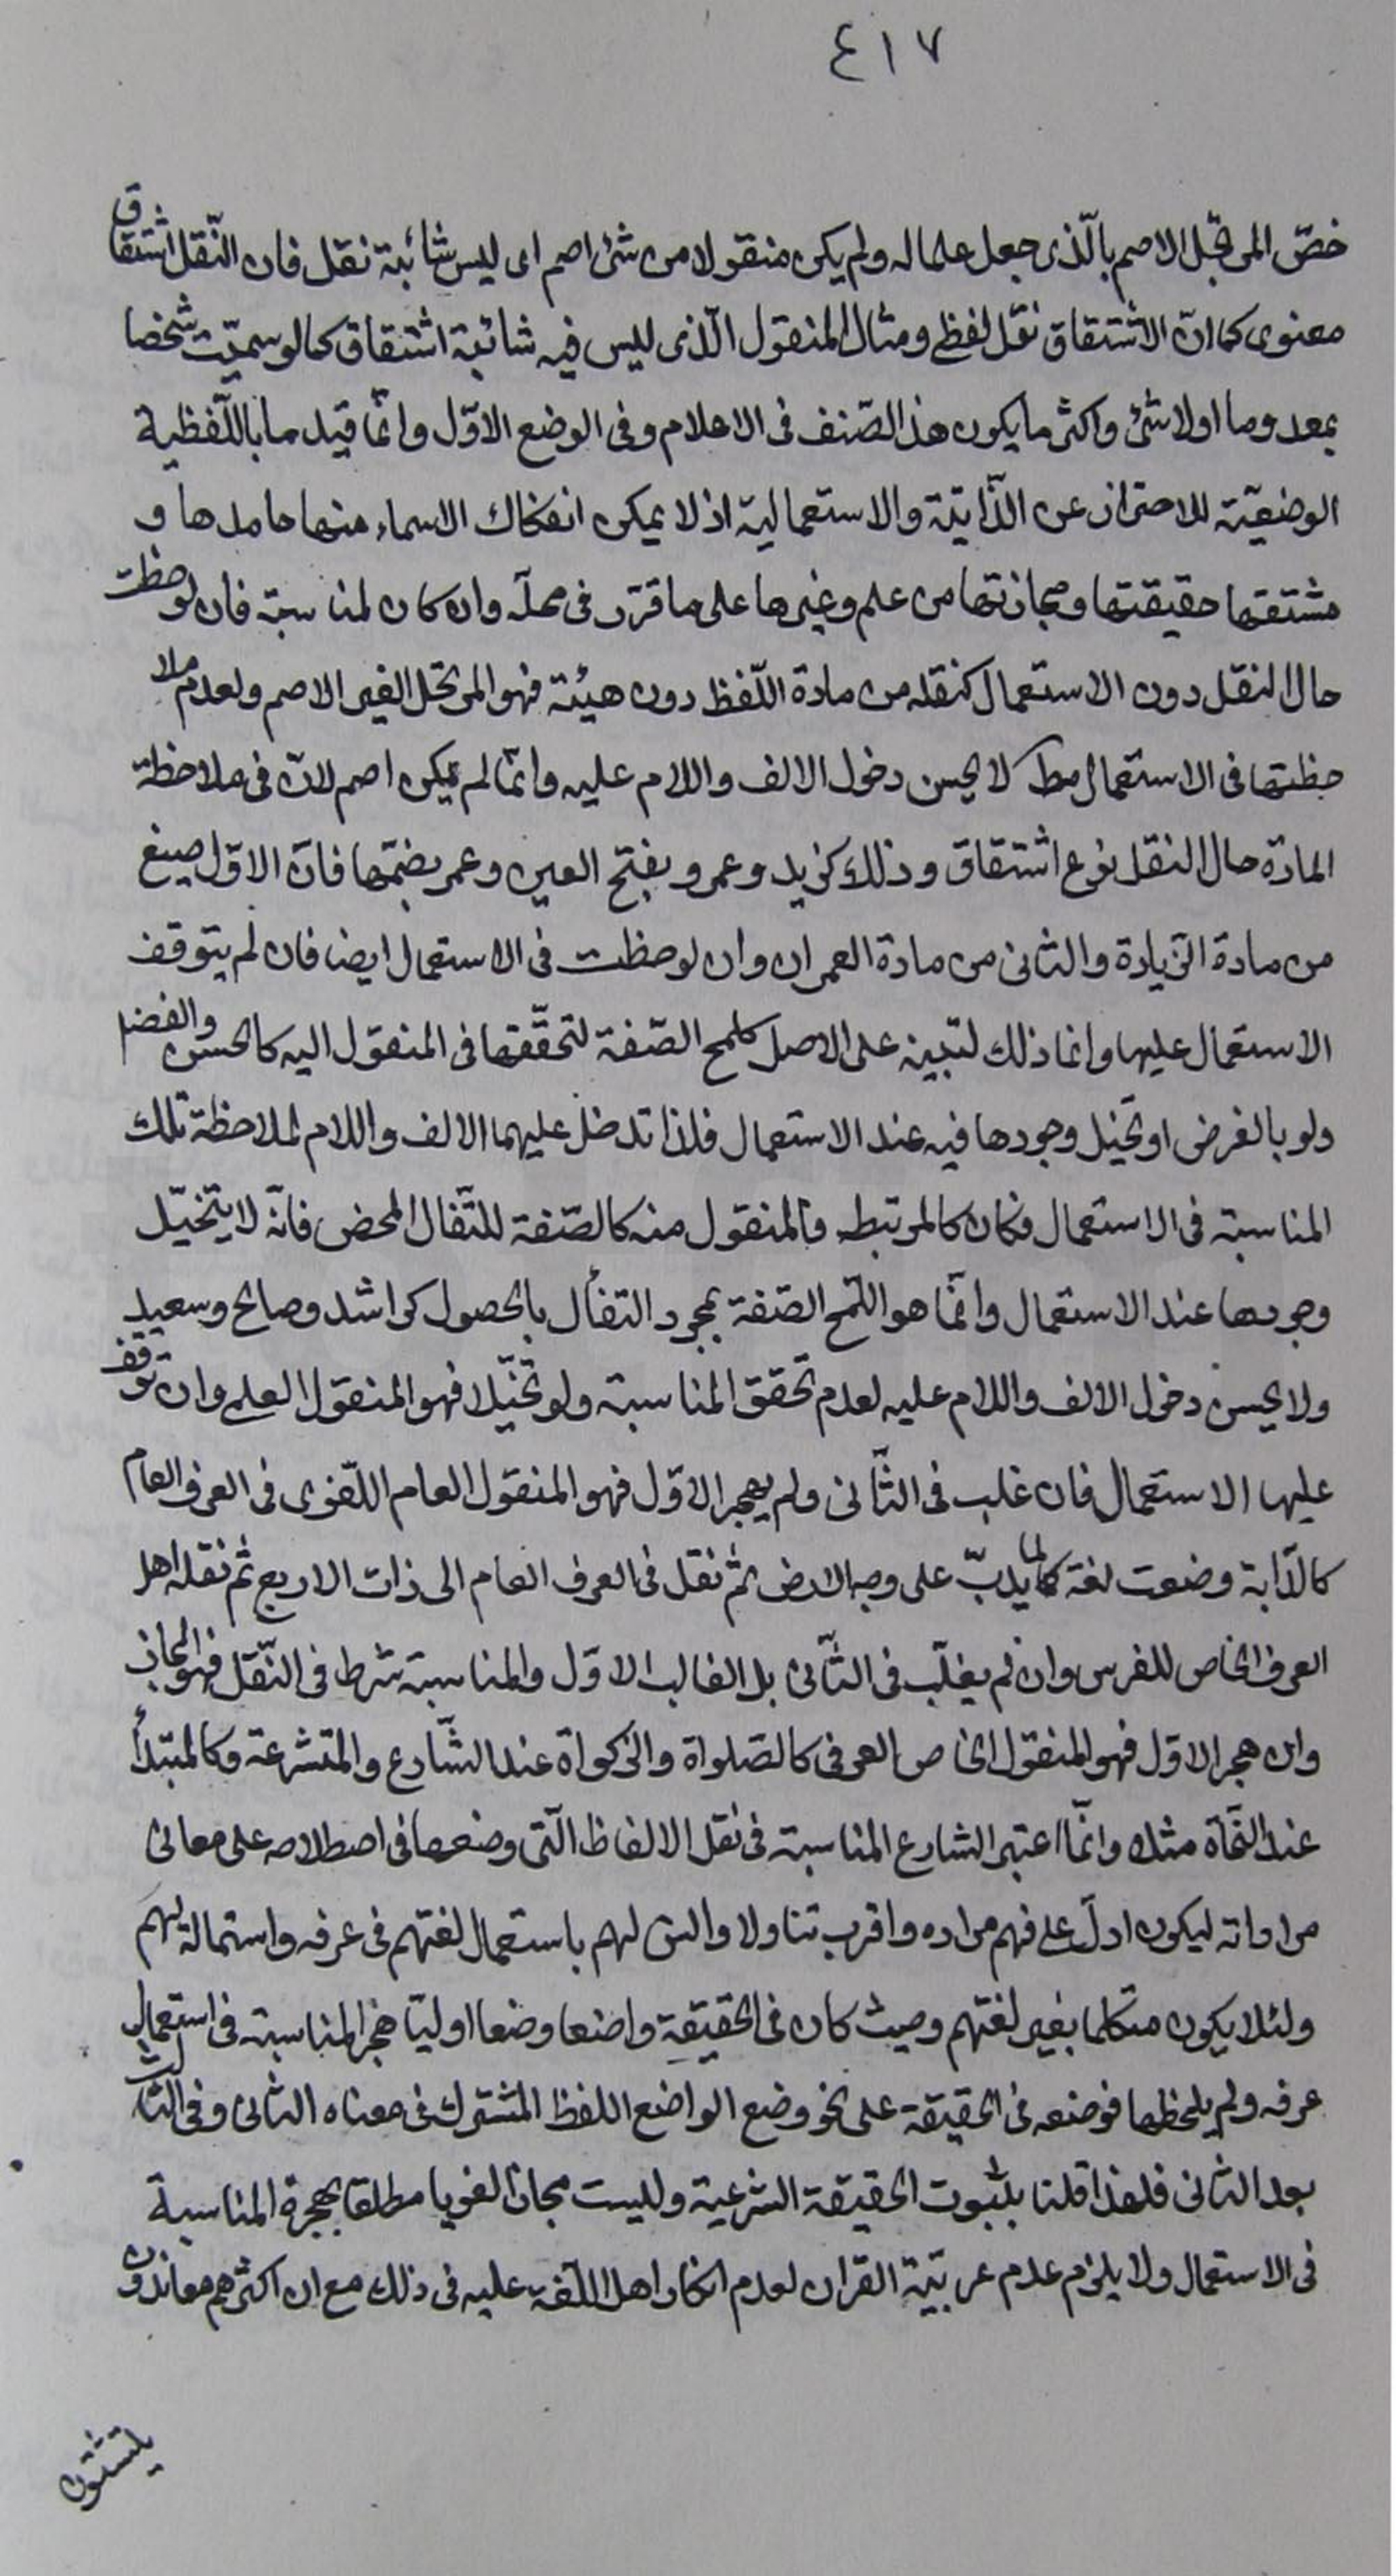 ٤١٧
خصّ المرتجل الاصم بالّذى جعل علما له ولم يكن منقولا من شئ اصم اى ليس شائبة نقل فان النّقل اشتقاق
معنوى كما انّ الاشتقاق نقل لفظى ومثال المنقول الّذى ليس فيه شائبة اشتقاق كما لو سميّت شخصا
بمعدوم او لا شئ واكثر ما يكون هذا الصّنف فى الاعلام وفى الوضع الاوّل وانّما قيدنا باللّفظية
الوضعيّة للاحتراز عن الذّاتيّة والاستعمالية اذ لا يمكن انفكاك الاسماء منها جامدها و
مشتقها حقيقتها ومجازتها من علم وغيرها على ما قرّر فى محلّه وان كان لمناسبة فان لوحظت
حال النقل دون الاستعمال كنقله من مادة اللّفظ دون هيئة فهو المرتجل الغير الاصم ولعدم ملا
حظتها فى الاستعمال مط لا يحسن دخول الالف واللام عليه وانّما لم يكن اصم لانّ فى ملاحظة
المادّة حال النقل نوع اشتقاق وذلك كزيد وعمرو بفتح العين وعمر بضمّها فانّ الاوّل صيغ
من مادة الزّيادة والثانى من مادة العمران وان لوحظت فى الاستعمال ايضا فان لم يتوقف
الاستعمال عليها وانما ذلك لتبيينه على الاصل كلمح الصّفة لتحقّقها فى المنقول اليه كالحسن والفضل
ولو بالفرض او تخيّل وجودها فيه عند الاستعمال فلذا تدخل عليهما الالف واللام لملاحظة تلك
المناسبة فى الاستعمال فكان كالمرتبط والمنقول منه كالصّفة للتّفال المحض فانّه لا يتخيّل
وجودها عند الاستعمال وانّما هو اللّمح الصّفة بمجرد التفأل بالحصول كراشد وصالح وسعيد
ولا يحسن دخول الالف واللام عليه لعدم تحقق المناسبة ولو تخيّلا فهو المنقول العلمى وان توقف
عليها الاستعمال فان غلب فى الثّانى ولم يهجر الاوّل فهو المنقول العام اللّغوى فى العرف العام
كالدّابة وضعت لغة لما يدبّ على وجه الارض ثم نقل فى العرف العام الى ذات الاربع ثم نقله اهل
العرف الخاص للفرس وان لم يغلب فى الثّانى بل الغالب الاوّل والمناسبة شرط فى النّقل فهو المجاز
وان هجر الاوّل فهو المنقول الخاص العرفى كالصّلواة والزكواة عند الشّارع والمتشرعة وكالمبتدأ
عند النّحاة مثلا وانّما اعتبر الشارع المناسبة فى نقل الالفاظ الّتى وضعها فى اصطلاحه على معانى
مراداته ليكون ادلّ على فهم مراده واقرب تناولا وانس لهم باستعمال لغتهم فى عرفه واستمالة لهم
ولئلا يكون متكلما بغير لغتهم وحيث كان فى الحقيقة واضعا وضعا اوليّا هجر المناسبة فى استعمال
عرفه ولم يلحظها فوضعه فى الحقيقة على نحو وضع الواضع اللفظ المشترك فى معناه الثانى وفى الثالث
بعد الثانى فلهذا قلنا بثبوت الحقيقة الشرعية وليست مجازا لغويا مطلقا لهجرة المناسبة
فى الاستعمال ولا يلزم عدم عربيّة القران لعدم انكار اهل اللّغة عليه فى ذلك مع ان اكثرهم معاندون